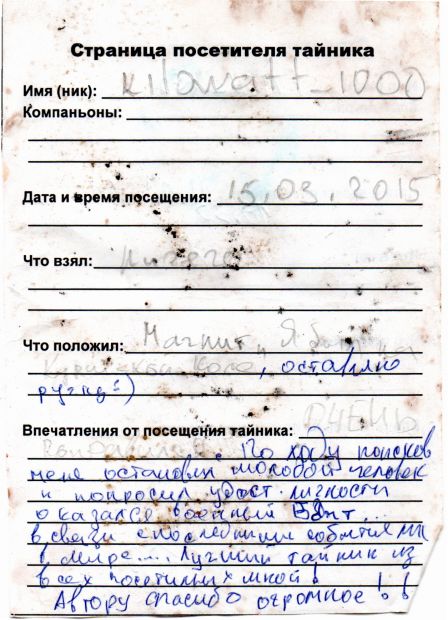 Страница посетителя тайника
Имя (ник): kilowatt_1000
Компаньоны:
Дата и время посещения: 15.03.2015
Что взял: Ничего
Что положил: Магнит "Я был на
Куршской косе", оставлю
ручку =)
Впечатления от посещения тайника: ОЧЕНЬ
. По ходу поисков
меня остановил молодой человек
и попросил удост. личности
оказался военный ...
в связи с последними событиями
в мире.... Лучший тайник из
всех посетильных мной!
Автору спасибо огромное!!!